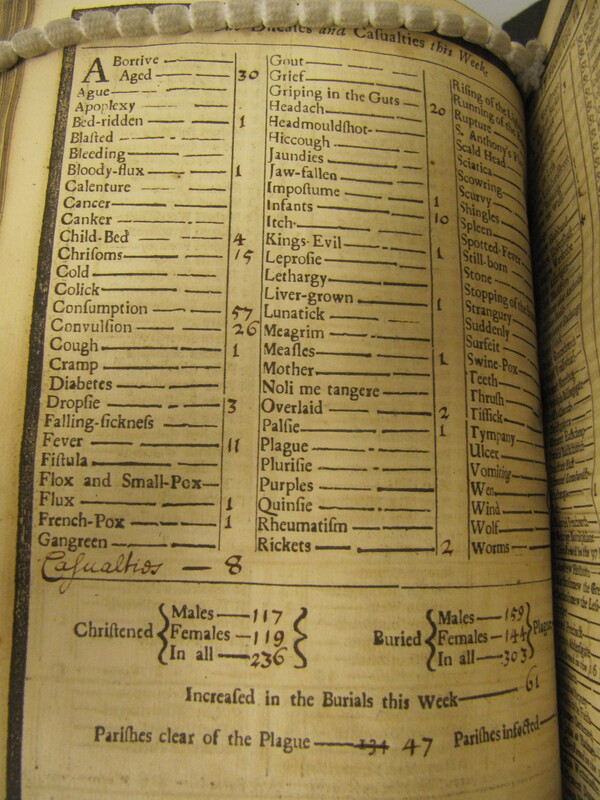 Diseases and Casualties this Week
ABortive
Aged 30
Ague
Apoplexy
Bed-ridden 1
Blaſted
Bleeding
Bloody-flux 1
Calenture
Cancer
Canker
Child-Bed 4
Chriſoms 15
Cold
Colick
Conſumption 57
Convulſion 26
Cough 1
Cramp
Diabetes
Dropſie 3
Falling-ſickneſs
Fever 11
Fiſtula
Flox and Small-Pox
Flux 1
French-Pox 1
Gangreen
Caſualties — 8
Gout
Grief
Griping in the Guts 20
Headach
Headmouldſhot
Hiccough
Jaundies
Jaw-fallen
Impoſtume 1
Infants 10
Itch
Kings-Evil 1
Leproſie
Lethargy
Liver-grown 1
Lunatick
Meagrim
Meaſles 1
Mother
Noli me tangere
Overlaid 2
Palſie 1
Plague
Pluriſie
Purples
Quinſie
Rheumatiſm
Rickets 2
Riſing of the
Running of the
Rupture
S. Anthony's
Scald Head
Sciatica
Scowring
Scurvy
Shingles
Spleen
Spotted-Fever
Still-born
Stone
Stopping of the
Strangury
Suddenly
Surfeit
Swine-Pox
Teeth
Thruſh
Tiſſick
Tympany
Ulcer
Vomiting
Wen
Wind
Wolf
Worms
Chriſtened { Males — 117
Females — 119
In all — 236 }
Buried { Males — 159
Females — 144
In all — 303 } Plague
Increaſed in the Burials this Week — 61
Pariſhes clear of the Plague — 134 47 Pariſhes infected —